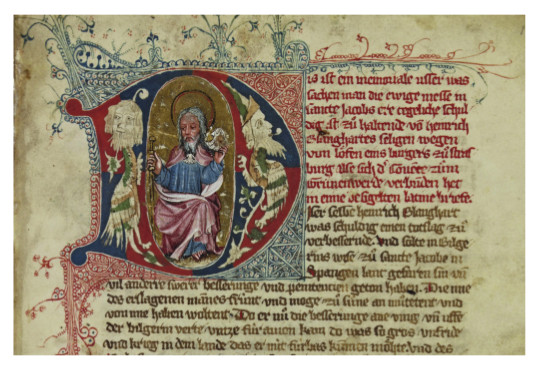 is ist ein memoriale usser was
sachen man die ewige messe in
sancte Jacobs ere ergeliche schul
dig ist zů haltende vō heinrich
Blanghartes seligen wegen
von eins burgers zů stras
burg Also sich der comētur zům
werde verbūden het
in eime besigelten latine briefe.
Der selbe heinrich Blanghart
was schuldig einen totslag zů
verbesserende. vnd solte in bilge
rins wise zů sancte Jacobe in
hispangen lant gefaren sin vn̄
vil andere swere besseringe vnd penitencien geton haben. Die ime
des erslagenen mānes frunt vnd moge zů sūne an můtetent vnd
von ime haben woltent. Do er nū die besseringe ane ving vn̄ uffe
der bilgerin verte vntze fúr kam do was so gros unfride
vnd krieg in dem lande das er nit fúrbas kūmen mohte. vnd des